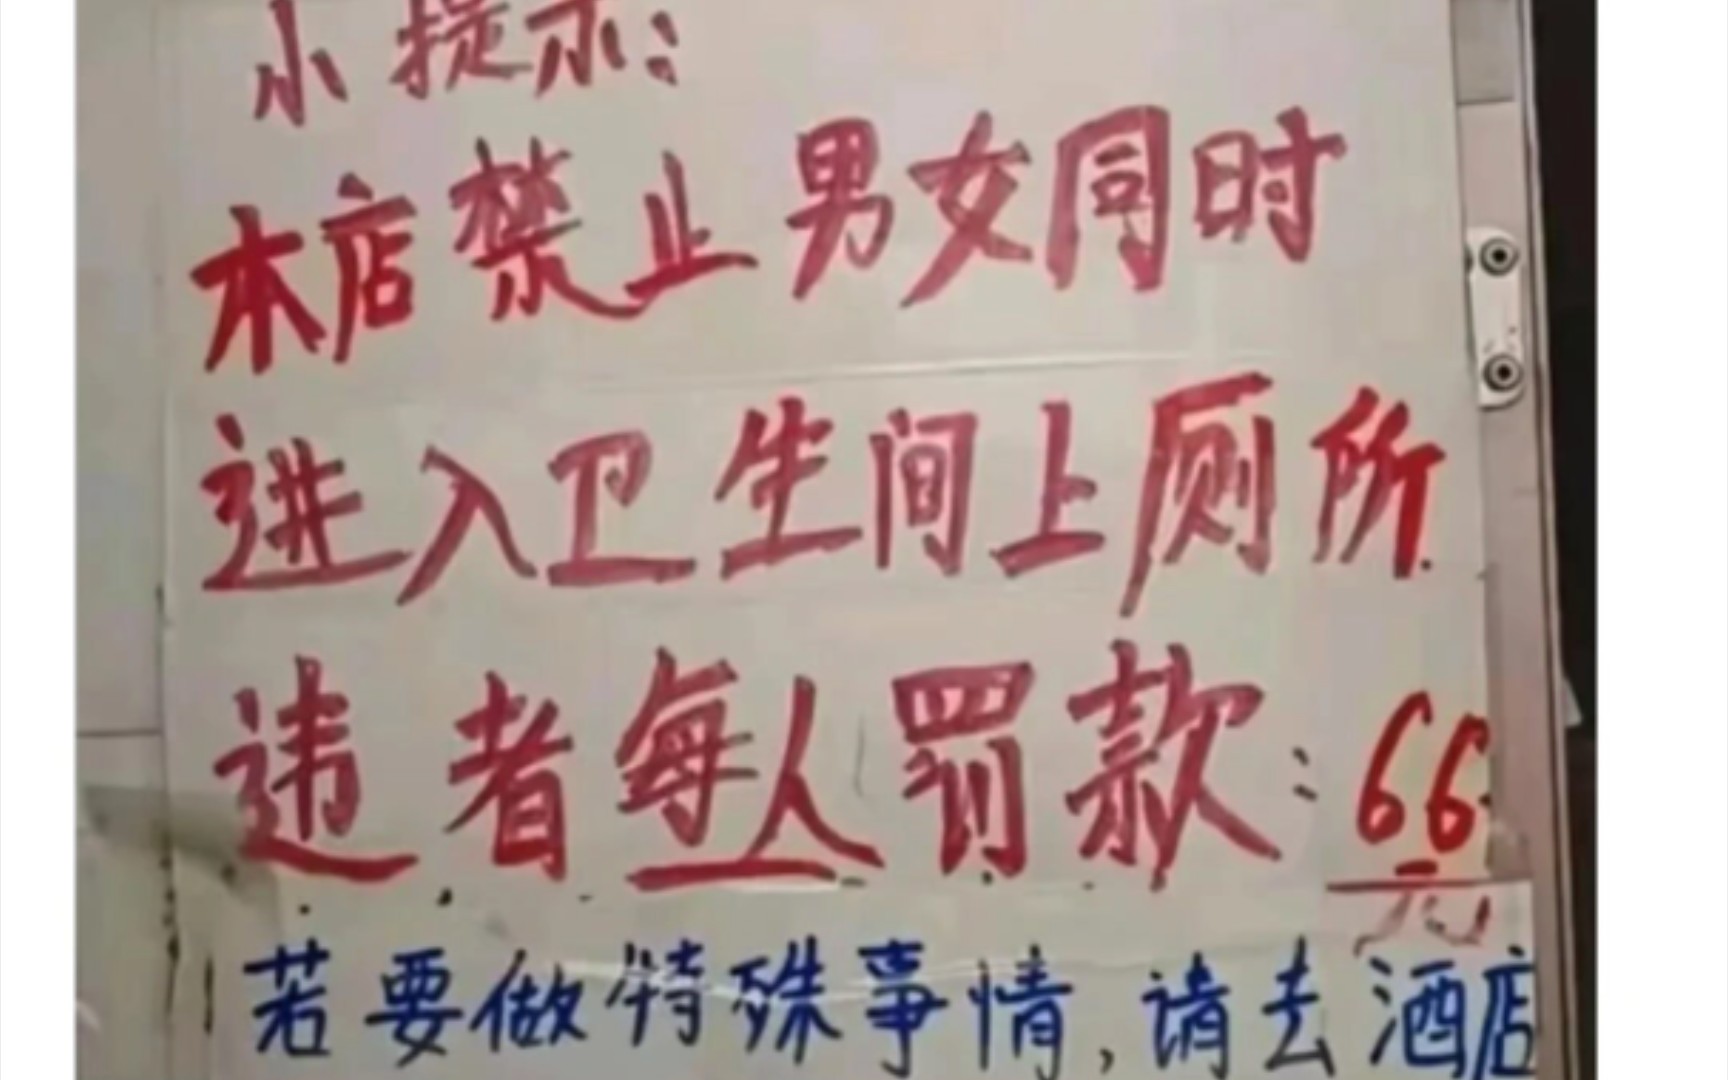 小提示:
本店禁止男女同时
进入卫生间上厕所
违者每人罚款:66元
若要做特殊事情,请去酒店